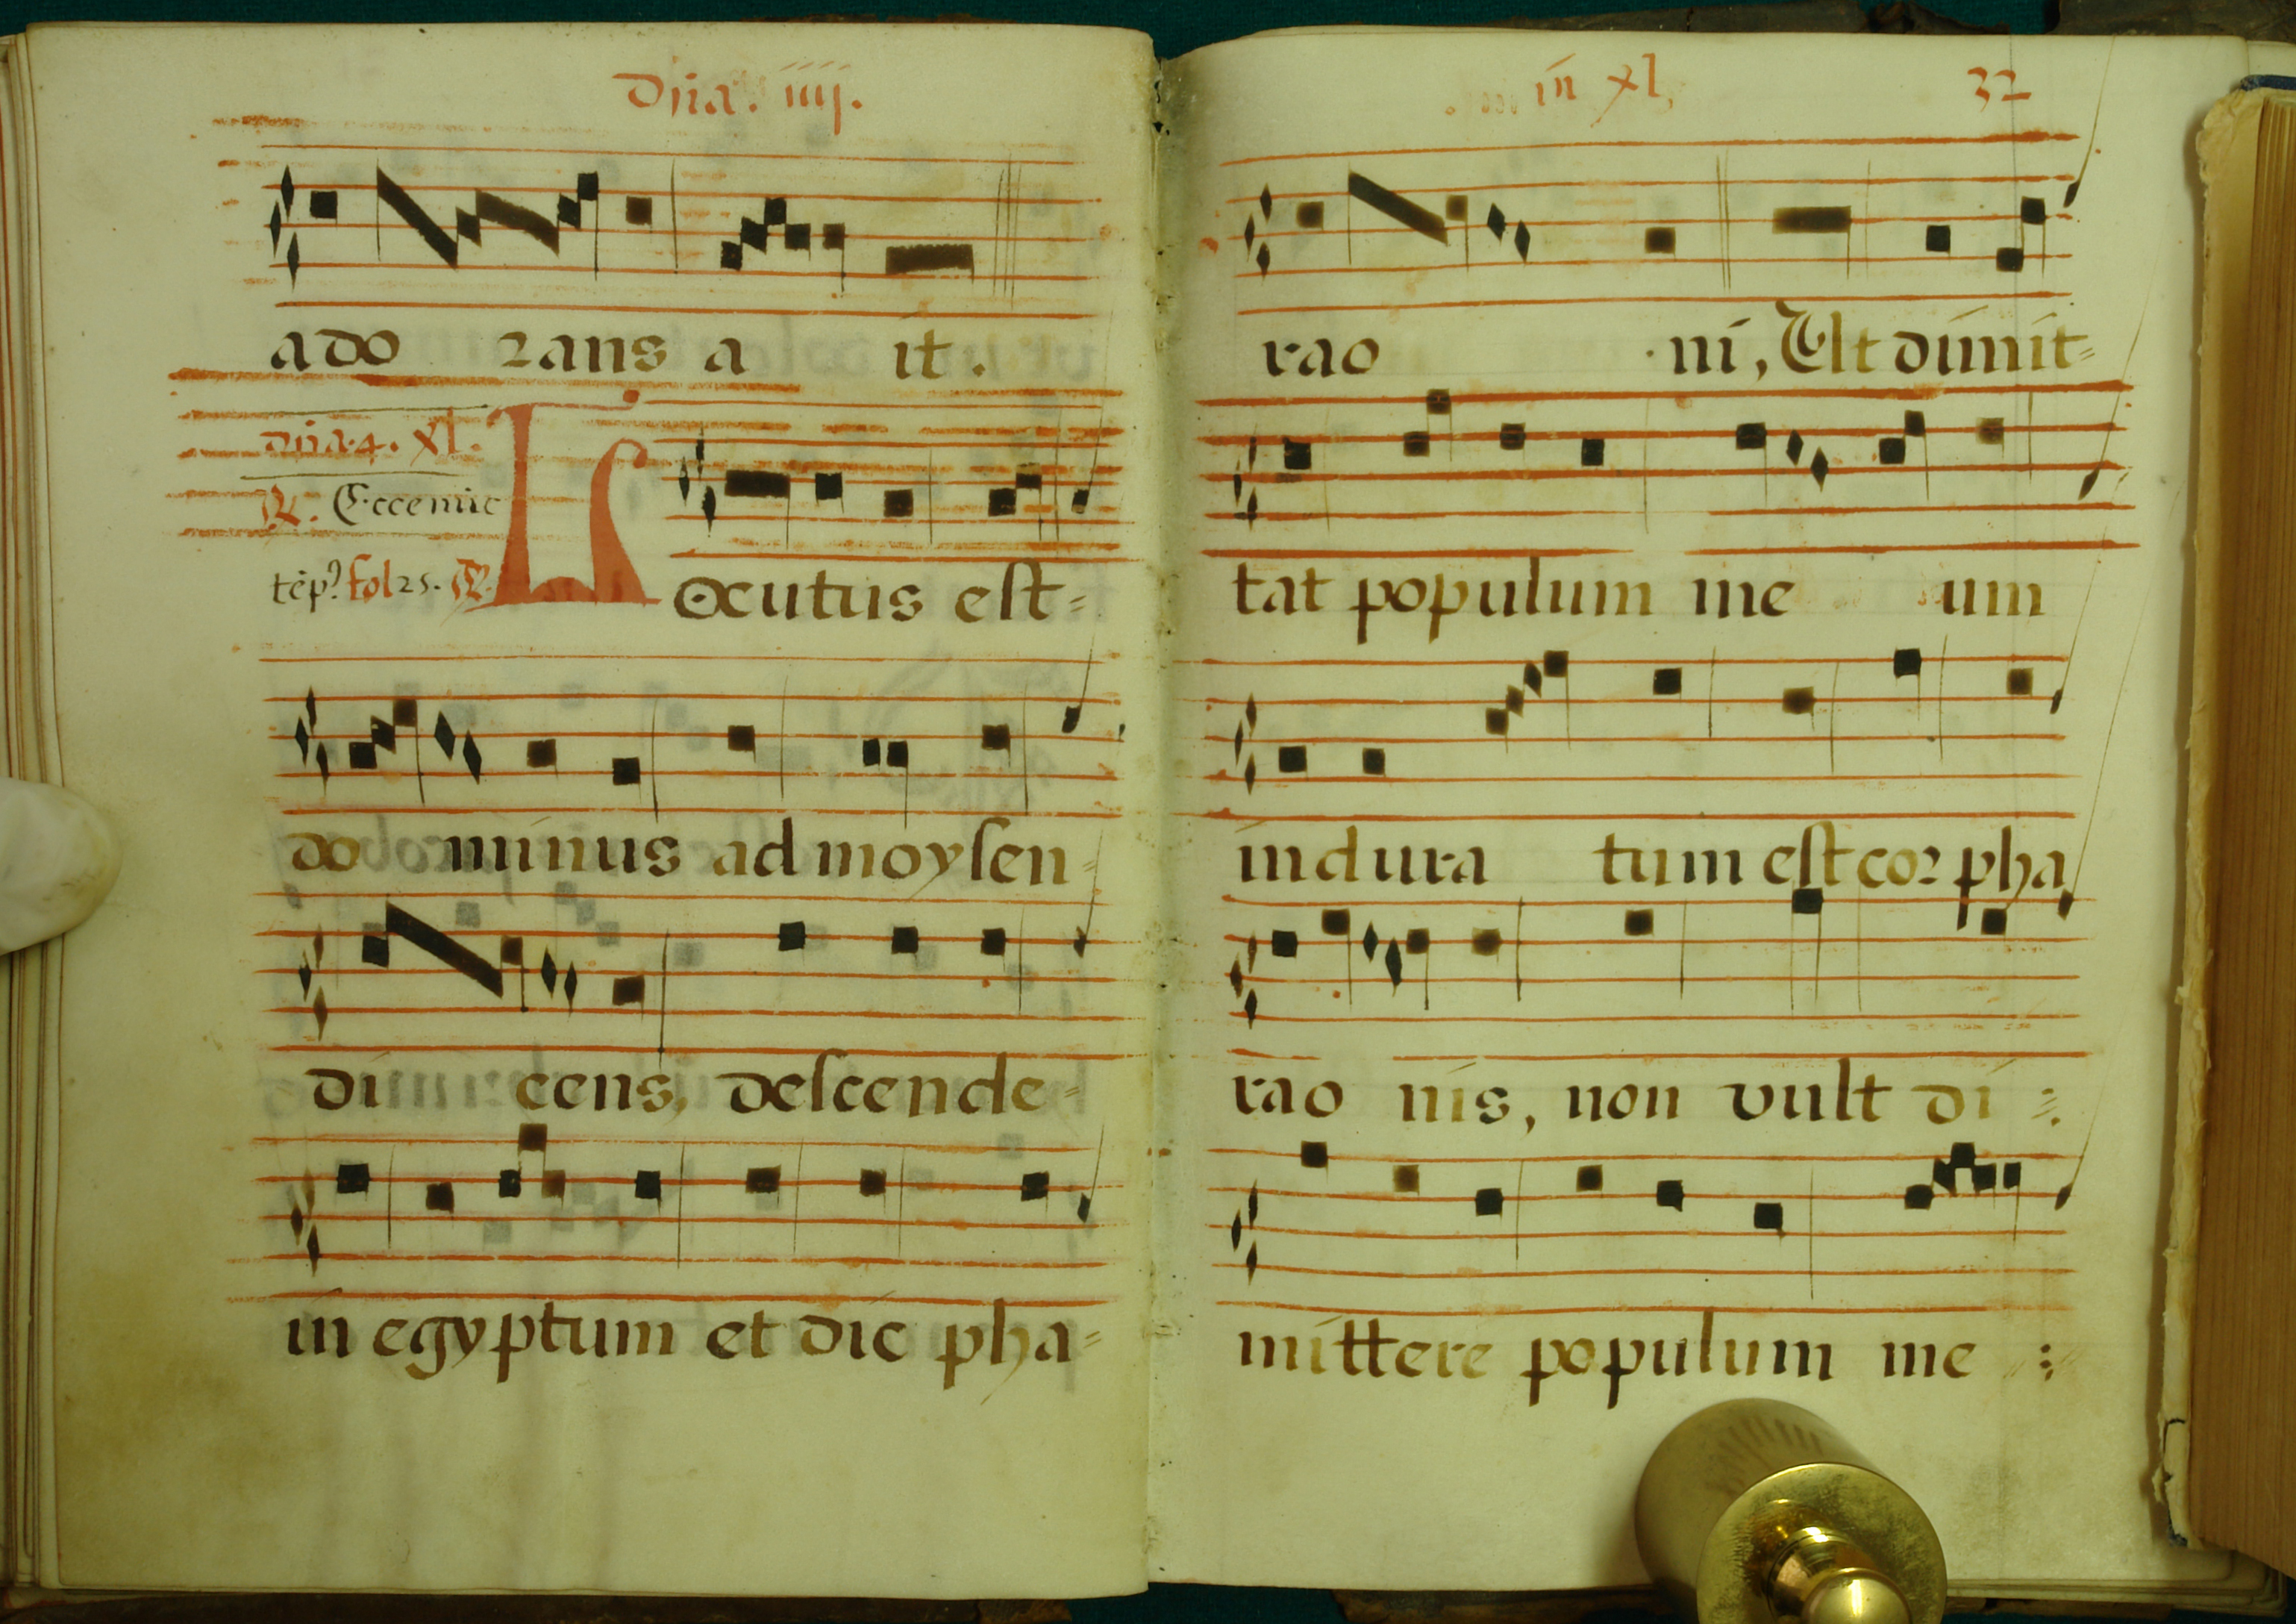 dn̄a. iiij.
ado rans a it.
dn̄a. 4. xl.
R̃. Ecce nūc
tēp⁹ fol 25. R̃.
Locutus est=
do minus ad moysen=
di cens, descende=
in egyptum et dic pha=
in xl, 32
rao ni, Ut dimit=
tat populum me um
indura tum est cor pha
rao nis, non vult di =.
mittere populum me :